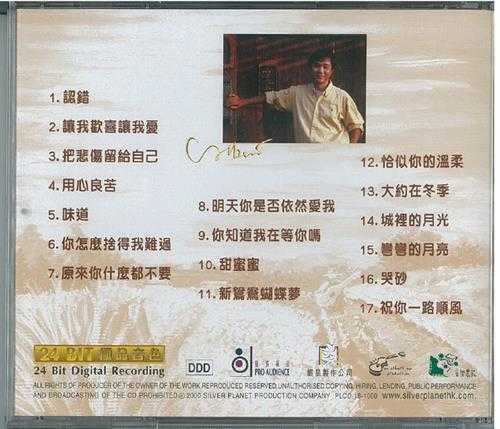 1. 認錯
2. 讓我歡喜讓我憂
3. 把悲傷留給自己
4. 用心良苦
5. 味道
6. 你怎麼捨得我難過
7. 原來你什麼都不要
8. 明天你是否依然愛我
9. 你知道我在等你嗎
10. 甜蜜蜜
11. 新鴛鴦蝴蝶夢
12. 恰似你的溫柔
13. 大約在冬季
14. 城裡的月光
15. 彎彎的月亮
16. 哭砂
17. 祝你一路順風
24 BIT 極品音色
24 Bit Digital Recording
DDD
PRO AUDIENCE
銀星製作公司
ALL RIGHTS OF PRODUCER OF THE OWNER OF THE WORK REPRODUCED RESERVED, UNAUTHORISED COPYING, HIRING, LENDING, PUBLIC PERFORMANCE
AND BROADCASTING OF THE CD PROHIBITED © 2000 SILVER PLANET PRODUCTION COMPANY PLCD 18-1000 WWW.SILVERPLANETHK.COM